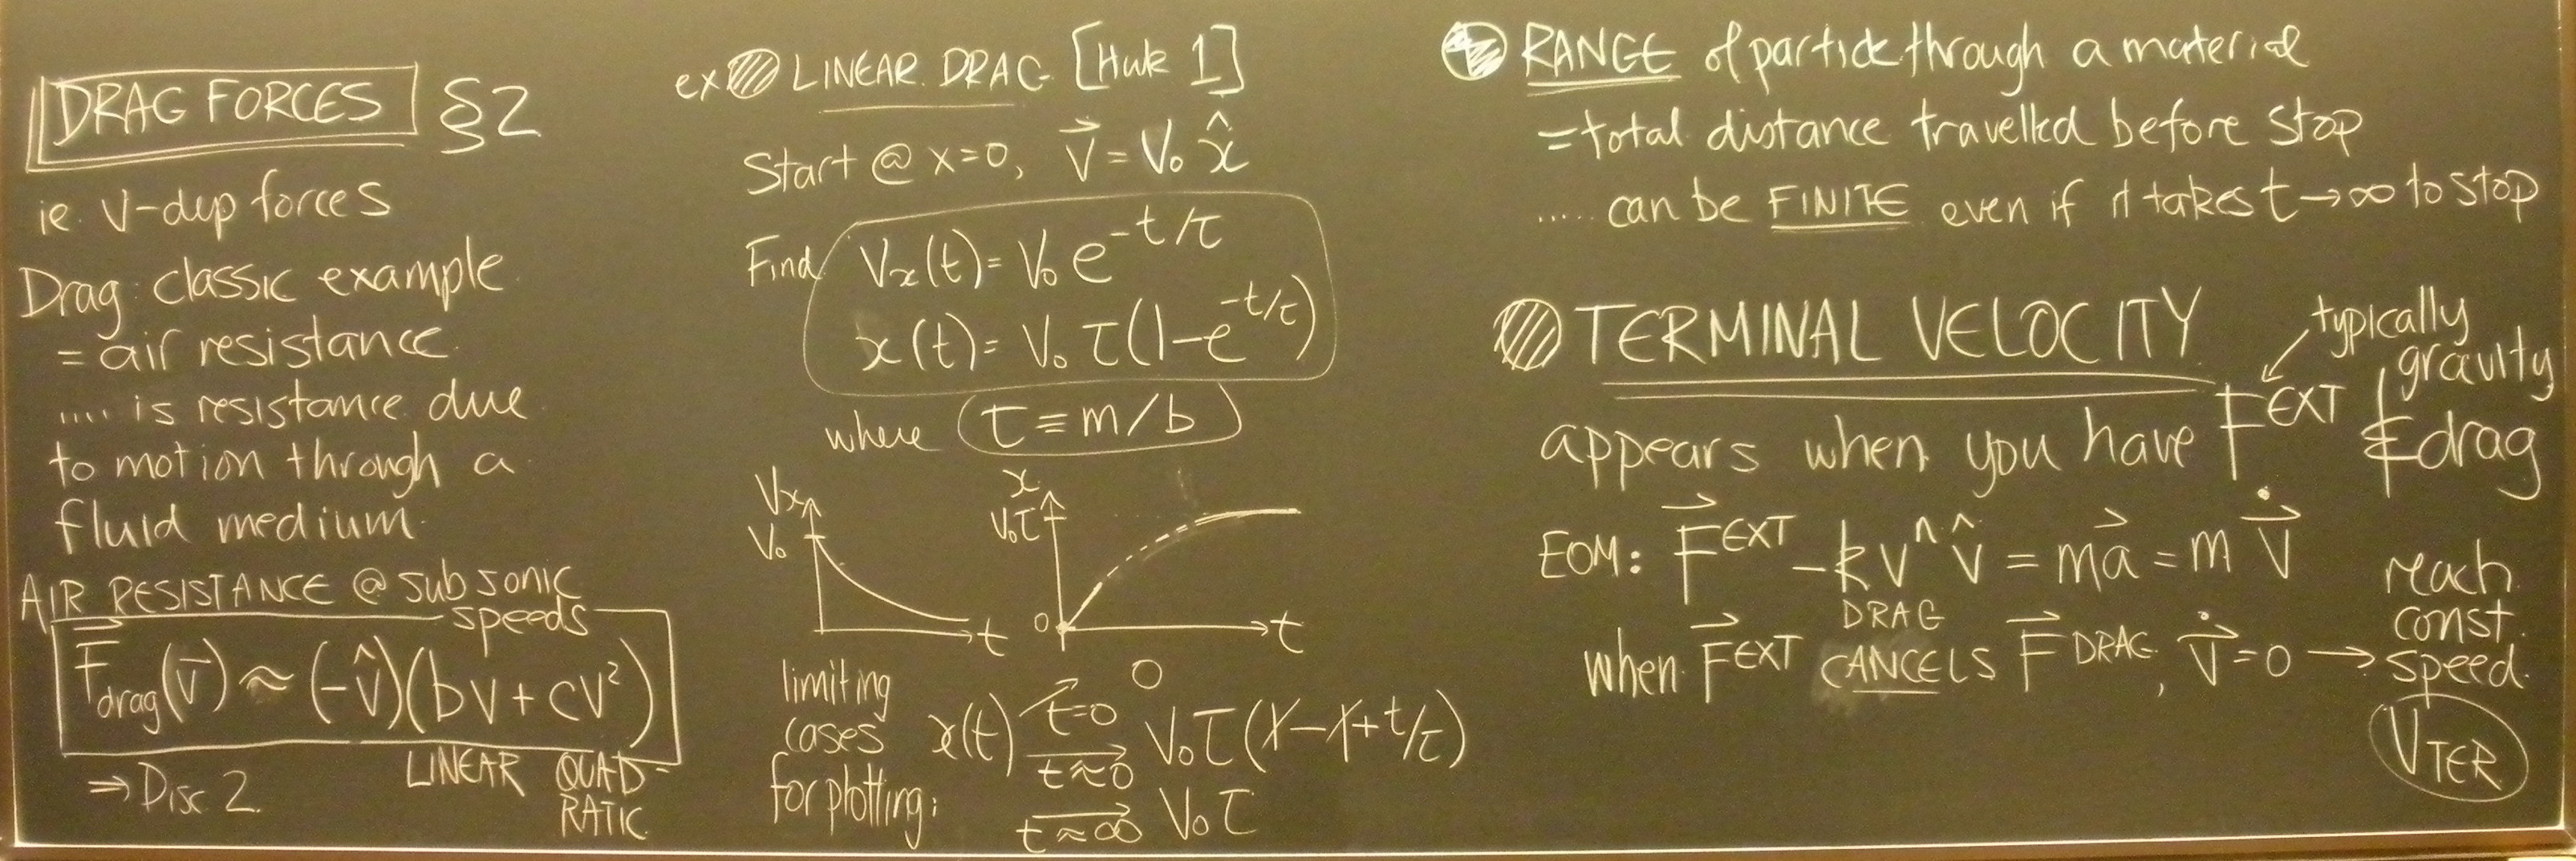 DRAG FORCES §2
ie. V-dep forces
Drag: classic example
= air resistance
.... is resistance due
to motion through a
fluid medium.
AIR RESISTANCE @ subsonic
speeds
F⃗drag(v⃗) ≈ (-v̂)(bv + cv²)
LINEAR QUAD-
RATIC
⇒ Disc 2.
ex LINEAR DRAG [Hwk 1]
Start @ x=0, V⃗ = V₀ x̂
Find Vx(t) = V₀ e^(-t/τ)
x(t) = V₀ τ(1-e^(-t/τ))
where τ ≡ m/b
Vx
V₀
t
x
V₀τ
0
t
limiting
cases
for plotting:
x(t) t=0 → 0
t≈0 → V₀τ(1-1+t/τ)
t≈∞ → V₀τ
RANGE of particle through a material
= total distance travelled before stop
..... can be FINITE even if it takes t→∞ to stop
TERMINAL VELOCITY
typically
gravity
appears when you have F^EXT & drag
EOM: F⃗^EXT - kv^n v̂ = ma⃗ = m v⃗̇
DRAG
when F⃗^EXT CANCELS F⃗^DRAG, v⃗̇ = 0 →
reach
const.
speed
VTER